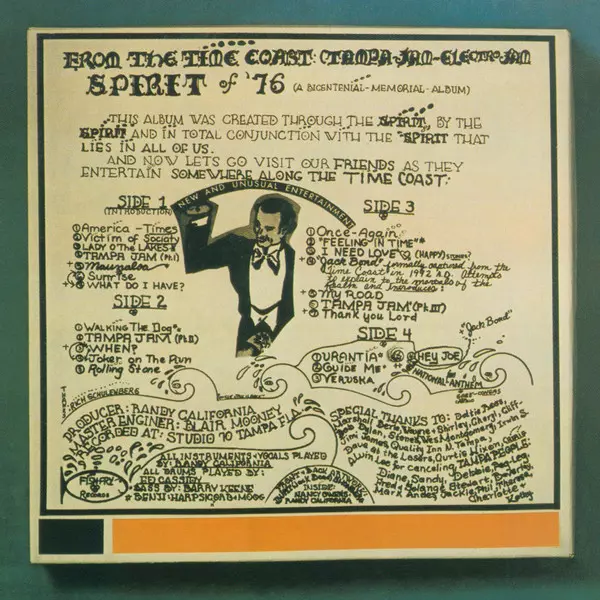 FROM THE TIME COAST: (TAMPA-JAM-ELECTRO-JAM
SPIRIT of '76 (A BICENTENIAL-MEMORIAL-ALBUM)
THIS ALBUM WAS CREATED THROUGH THE SPIRIT, BY THE
SPIRIT AND IN TOTAL CONJUNCTION WITH THE SPIRIT THAT
LIES IN ALL OF US.
AND NOW LETS GO VISIT OUR FRIENDS AS THEY
ENTERTAIN SOMEWHERE ALONG THE TIME COAST:
NEW AND UNUSUAL ENTERTAINMENT
SIDE 1
(INTRODUCTION)
① America-Times
② Victim of Society
③ LADY O' THE LAKES
④ TAMPA JAM (Pt.I)
⑤ Maunaloa
⑥ Sunrise
⑦ WHAT DO I HAVE?
SIDE 2
① WALKING THE DOG*
② TAMPA JAM (Pt.II)
③ WHEN?
④ Joker on The Run
⑤ Rolling Stone
SIDE 3
① Once-Again
② "FEELING IN TIME"*
③ I NEED LOVE (HAPPY)
④ "Jack Bond"
Time Coast in 1992 A.D. Attempts
to explain to the mortals of the
Realm and Introduces:
⑤ My ROAD
⑥ TAMPA JAM (Pt.III)
⑦ Thank you Lord
SIDE 4
"Jack Bond"
① URANTIA*
② GUIDE ME*
③ VERUSKA
④ HEY JOE
NATIONAL ANTHEM
RICH SCHULENBERG
PRODUCER: RANDY CALIFORNIA
MASTER ENGINER: BLAIR MOONEY
RECORDED AT: STUDIO 70 TAMPA FLA.
ALL INSTRUMENTS + VOCALS PLAYED
BY: RANDY CALIFORNIA
ALL DRUMS PLAYED BY:
ED CASSIDY
BASS BY: BARRY KEENE
BENJI: HARPSICORD + MOOG
Records
INSIDE:
NANCY OWENS
RANDY CALIFORNIA
SPECIAL THANKS TO:
Bob Dylan, Stones, Wes Montgomery
Jimi James, Quality Inn N. Tampa,
David at the Lasers, Curtis Nixon,
Alvin Lee for canceling, TAMPA PEOPLE:
Diane, Sandy, Debbie,
Fred + Solange Stewart,
Mark Andes, Jackie, Phil,
Charlotte